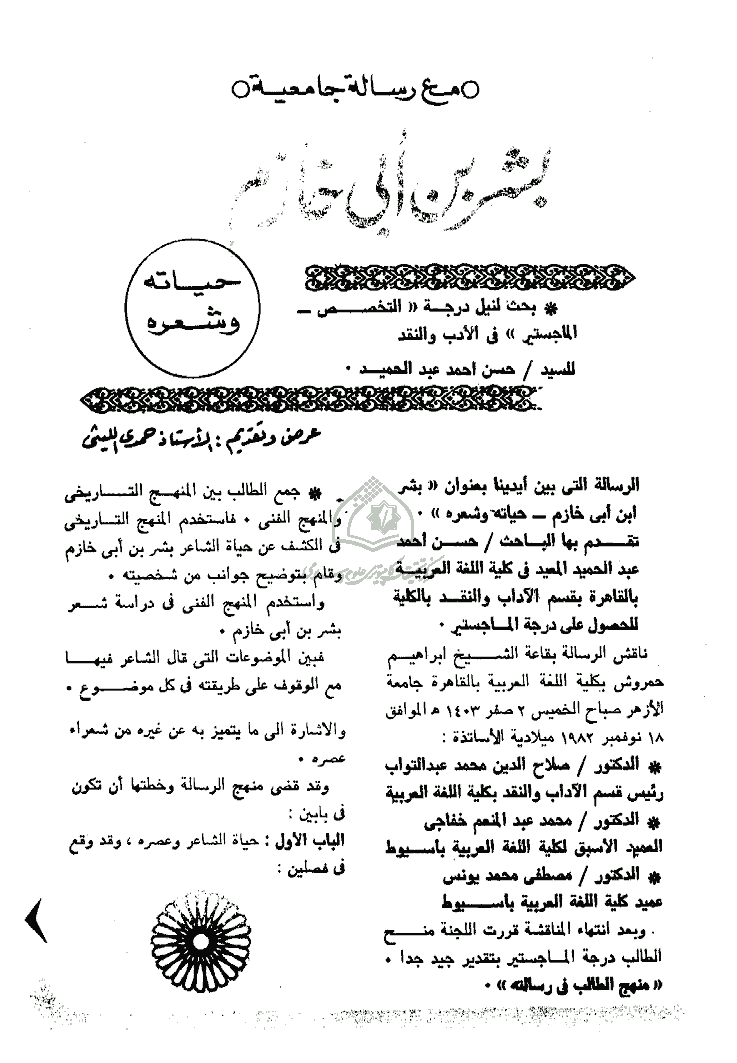 مع رسالة جامعية
بشر بن أبى خازم
حياته
وشعره
* بحث لنيل درجة « التخصص ــ
الماجستير » فى الأدب والنقد
للسيد / حسن احمد عبد الحميد ٠
عرض وتقديم : الأستاذ حمدى الليثى
الرسالة التى بين أيدينا بعنوان « بشر
ابن أبى خازم ــ حياته وشعره » ٠
تقدم بها الباحث / حسن أحمد
عبد الحميد المعيد فى كلية اللغة العربية
بالقاهرة بقسم الآداب والنقد بالكلية
للحصول على درجة الماجستير ٠
ناقش الرسالة بقاعة الشيخ ابراهيم
حمروش بكلية اللغة العربية بالقاهرة جامعة
الأزهر صباح الخميس ٢ صفر ١٤٠٣ هـ الموافق
١٨ نوفمبر ١٩٨٢ ميلادية الأساتذة :
* الدكتور / صلاح الدين محمد عبدالتواب
رئيس قسم الآداب والنقد بكلية اللغة العربية
* الدكتور / محمد عبد المنعم خفاجى
العميد الأسبق لكلية اللغة العربية بأسيوط
* الدكتور / مصطفى محمد يونس
عميد كلية اللغة العربية بأسيوط
وبعد انتهاء المناقشة قررت اللجنة منح
الطالب درجة الماجستير بتقدير جيد جدا ٠
« منهج الطالب فى رسالته » ٠
* جمع الطالب بين المنهج التاريخى
والمنهج الفنى ٠ فاستخدم المنهج التاريخى
فى الكشف عن حياة الشاعر بشر بن أبى خازم
وقام بتوضيح جوانب من شخصيته ٠
وأستخدم المنهج الفنى فى دراسة شعر
بشر بن أبى خازم ٠
فبين الموضوعات التى قال الشاعر فيها
مع الوقوف على طريقته فى كل موضوع ٠
والاشارة الى ما يتميز به عن غيره من شعراء
عصره ٠
وقد قضى منهج الرسالة وخطتها أن تكون
فى بابين :
الباب الأول : حياة الشاعر وعصره ، وقد وقع
فى فصلين :